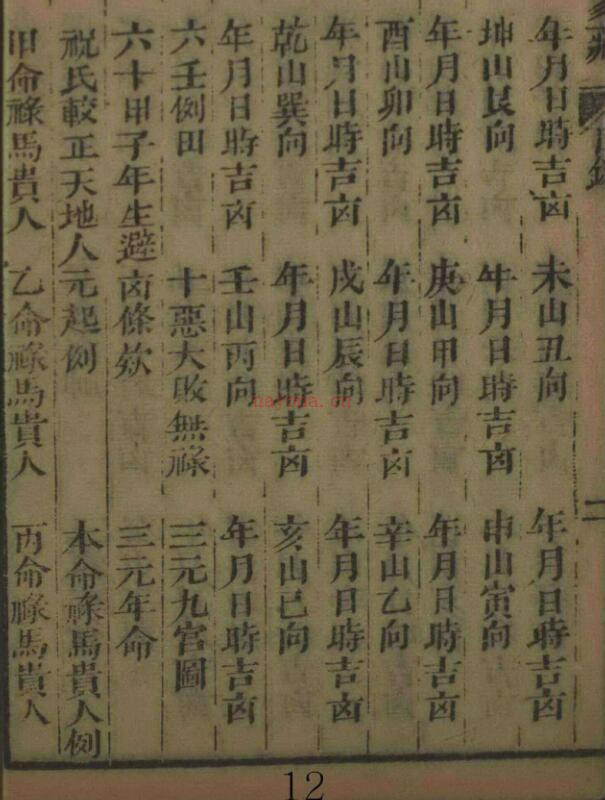 目錄
二
年月日時吉凶 未山丑向 年月日時吉凶
坤山艮向 年月日時吉凶 申山寅向
年月日時吉凶 庚山甲向 年月日時吉凶
酉山卯向 年月日時吉凶 辛山乙向
年月日時吉凶 戌山辰向 年月日時吉凶
乾山巽向 年月日時吉凶 亥山巳向
年月日時吉凶 壬山丙向 年月日時吉凶
六壬例田 十惡大敗無祿 三元九宮圖
六十甲子年生避凶條欵 三元年命
祝氏較正天地人元起例 本命祿馬貴人例
甲命祿馬貴人 乙命祿馬貴人 丙命祿馬貴人
nayona.cn
12